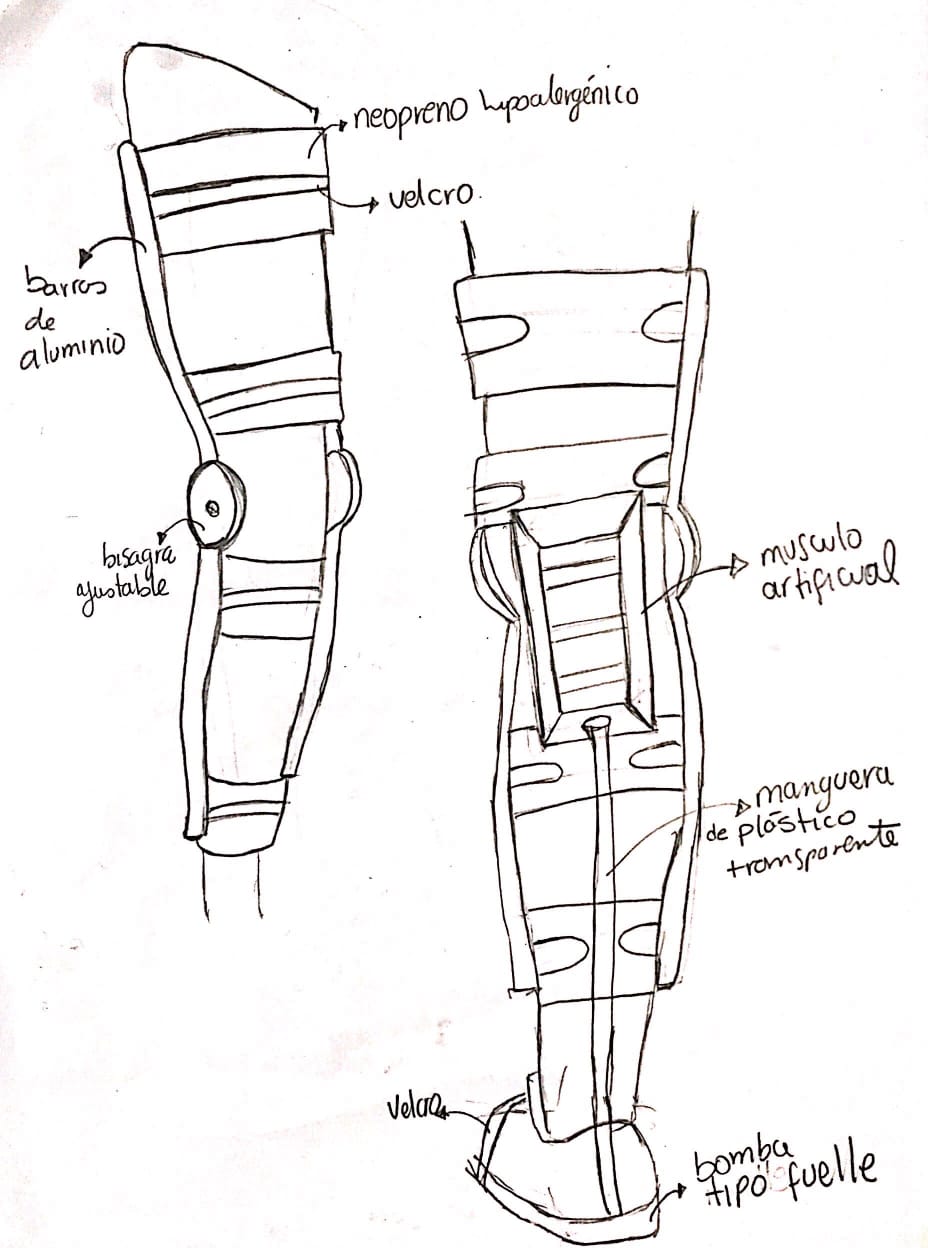 neopreno hipoalergénico
velcro.
barras
de
aluminio
bisagra
ajustable
musculo
artificial
manguera
de plástico
transparente
Velcro
bomba
tipo fuelle